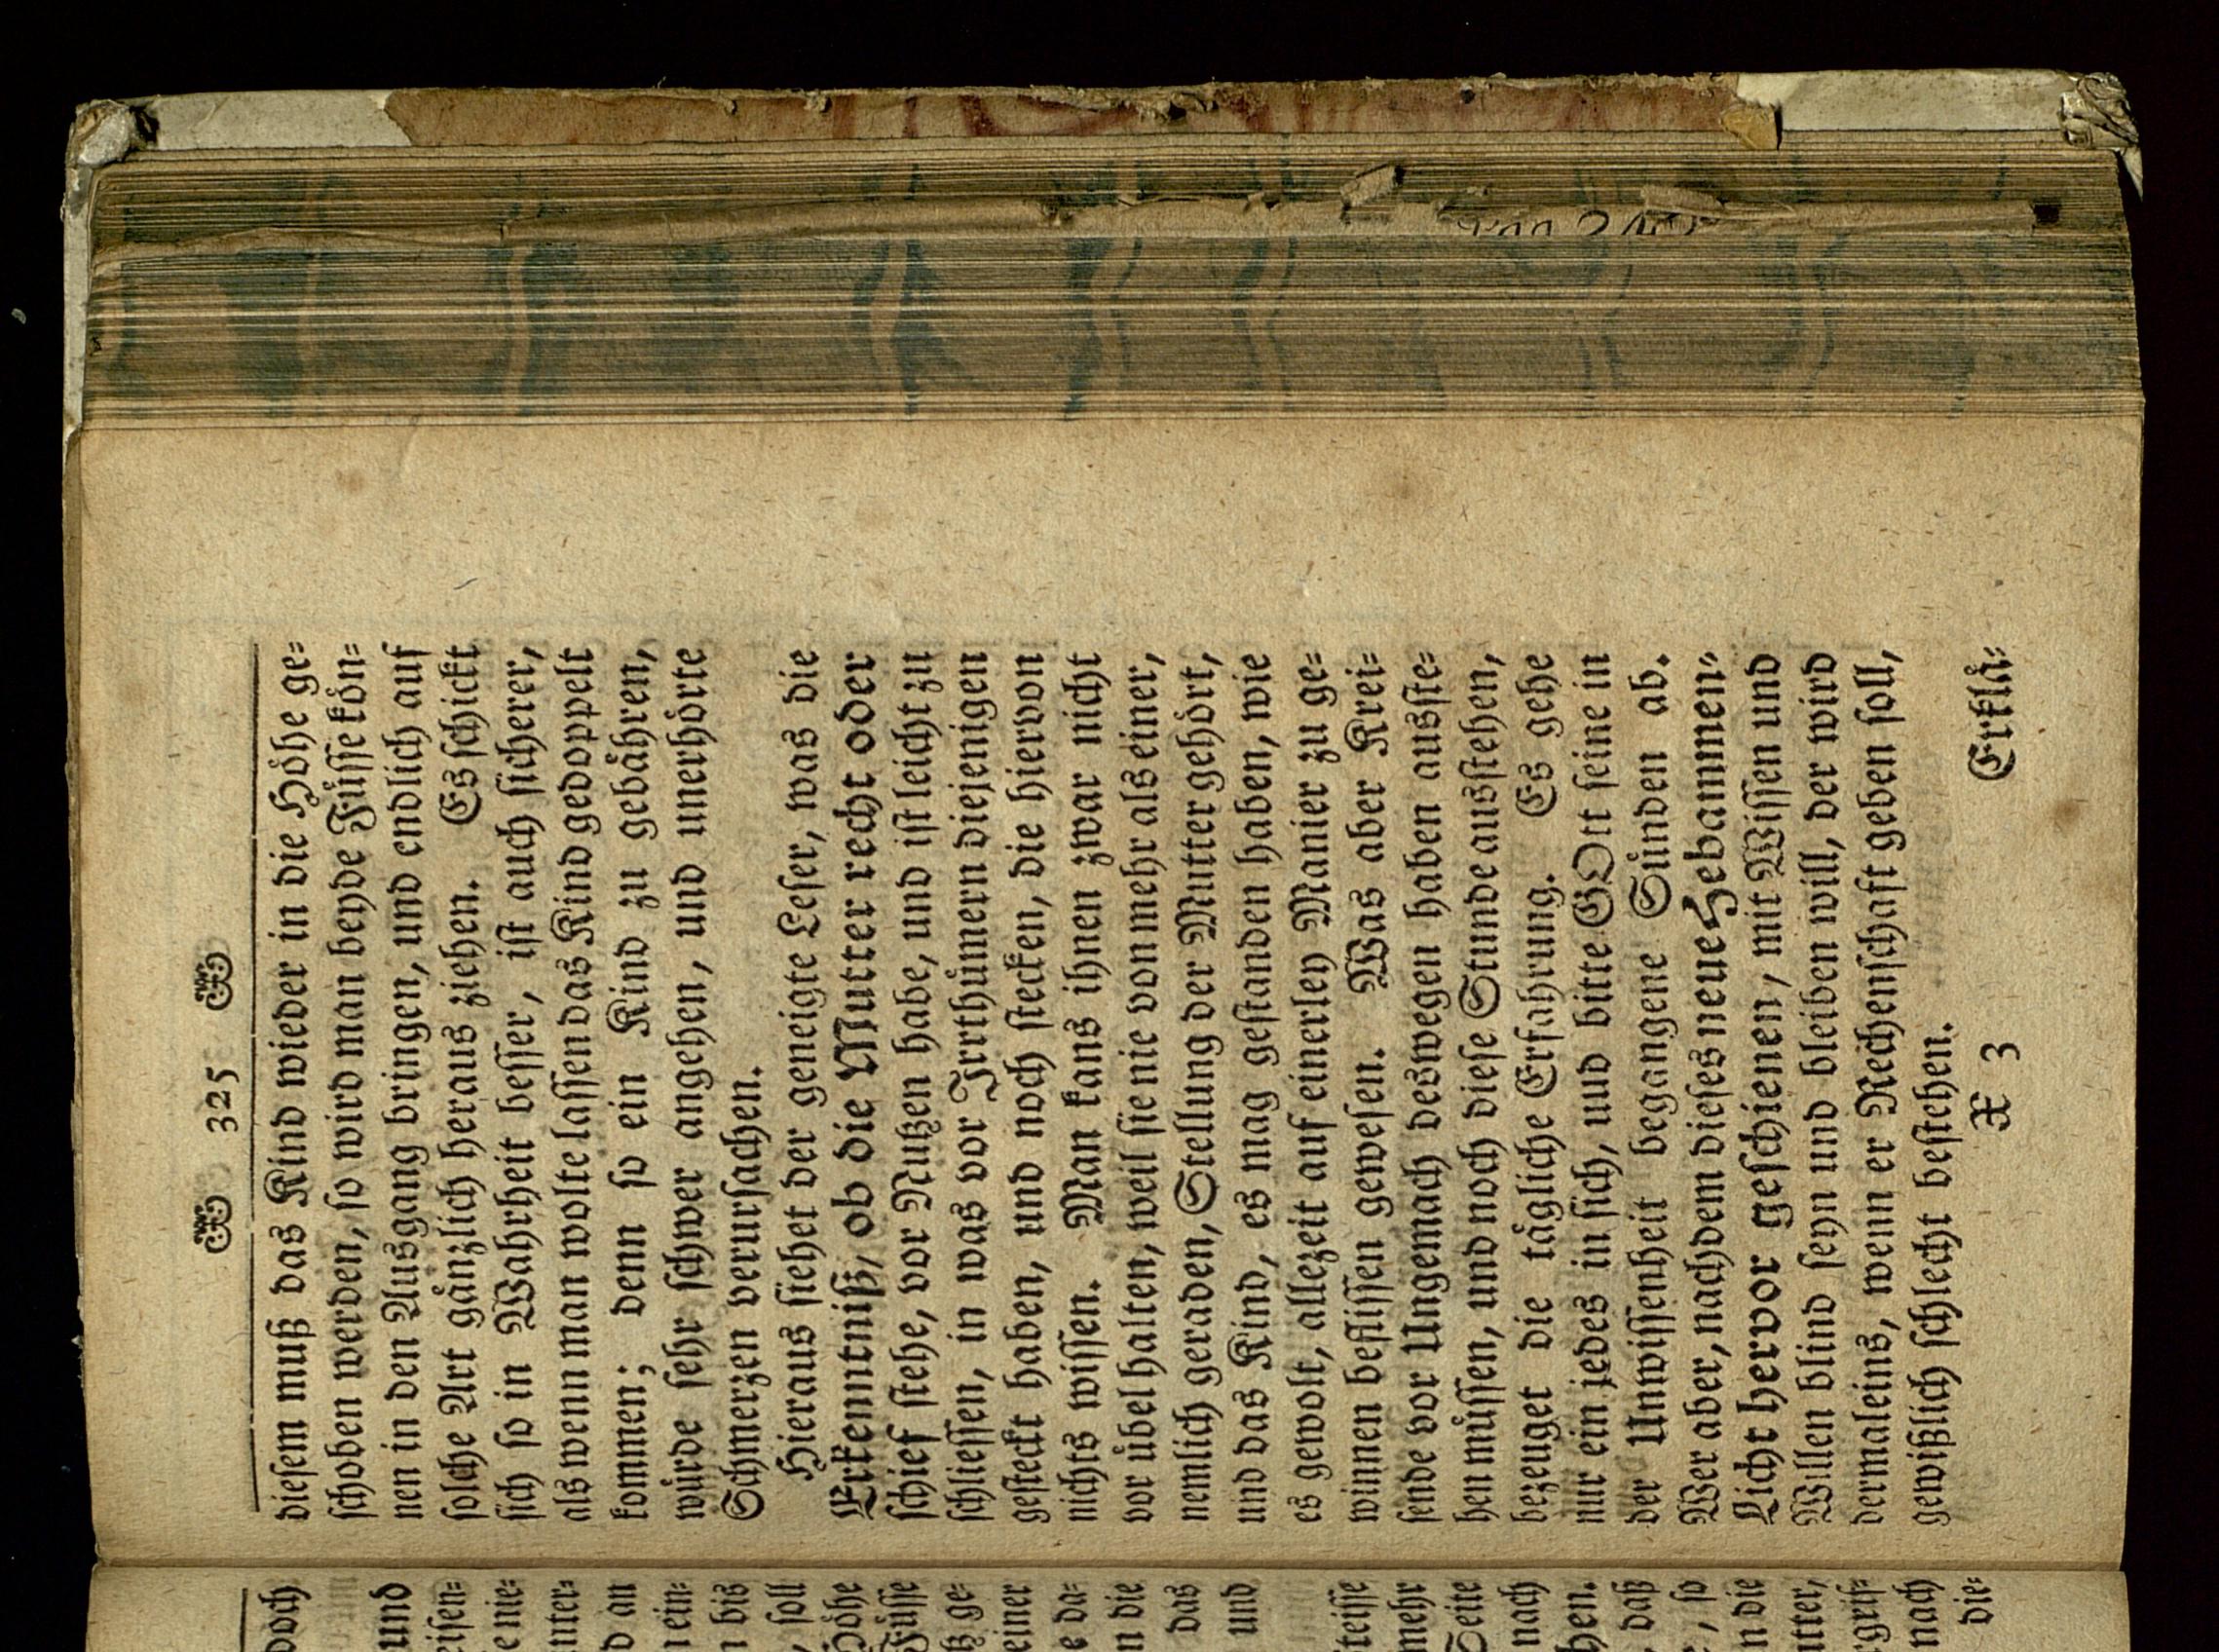 325
diesem muß das Kind wieder in die Höhe ge=
schoben werden, so wird man beyde Füsse kön=
nen in den Ausgang bringen, und endlich auf
solche Art gänzlich heraus ziehen. Es schickt
sich so in Wahrheit besser, ist auch sicherer,
als wenn man wolte lassen das Kind gedoppelt
kommen; denn so ein Kind zu gebähren,
würde sehr schwer angehen, und unerhörte
Schmerzen verursachen.
Hieraus siehet der geneigte Leser, was die
Erkenntniß, ob die Mutter recht oder
schief stehe, vor Nutzen habe, und ist leicht zu
schliessen, in was vor Irrthümern diejenigen
gesteckt haben, und noch stecken, die hiervon
nichts wissen. Man kans ihnen zwar nicht
vor übel halten, weil sie nie von mehr als einer,
nemlich geraden, Stellung der Mutter gehört,
und das Kind, es mag gestanden haben, wie
es gewolt, allezeit auf einerley Manier zu ge=
winnen beflissen gewesen. Was aber Krei=
sende vor Ungemach deswegen haben ausste=
hen müssen, und noch diese Stunde ausstehen,
bezeuget die tägliche Erfahrung. Es gehe
nur ein jedes in sich, und bitte GOtt seine in
der Unwissenheit begangene Sünden ab.
Wer aber, nachdem dieses neue Hebammen=
Licht hervor geschienen, mit Wissen und
Willen blind seyn und bleiben will, der wird
dermaleins, wenn er Rechenschaft geben soll,
gewißlich schlecht bestehen.
X 3 Erklä=
doch
und
eisen=
e nie=
nter=
d an
ein=
bis
soll
Höhe
Füsse
ge=
einer
e da=
n die
das
und
teisse
mehr
Seite
nach
hen.
daß
, so
n die
utter,
grif=
nach
die=